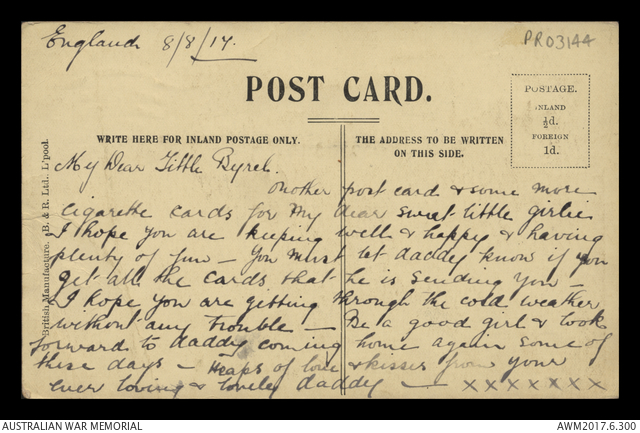 England 8/8/17.
PR03144
POST CARD.
POSTAGE.
INLAND
½d.
FOREIGN
1d.
WRITE HERE FOR INLAND POSTAGE ONLY.
THE ADDRESS TO BE WRITTEN
ON THIS SIDE.
British Manufacture. B. & R. Ltd., L'pool.
My Dear Little
Another post card & some more
cigarette cards for my dear sweet little girlie
I hope you are keeping well & happy & having
plenty of fun — You must let daddy know if you
get all the cards that he is sending you —
I hope you are getting through the cold weather
without any trouble — Be a good girl & look
forward to daddy coming home again some of
these days — Heaps of love & kisses from your
ever loving & lonely daddy — x x x x x x x
AUSTRALIAN WAR MEMORIAL
AWM2017.6.300